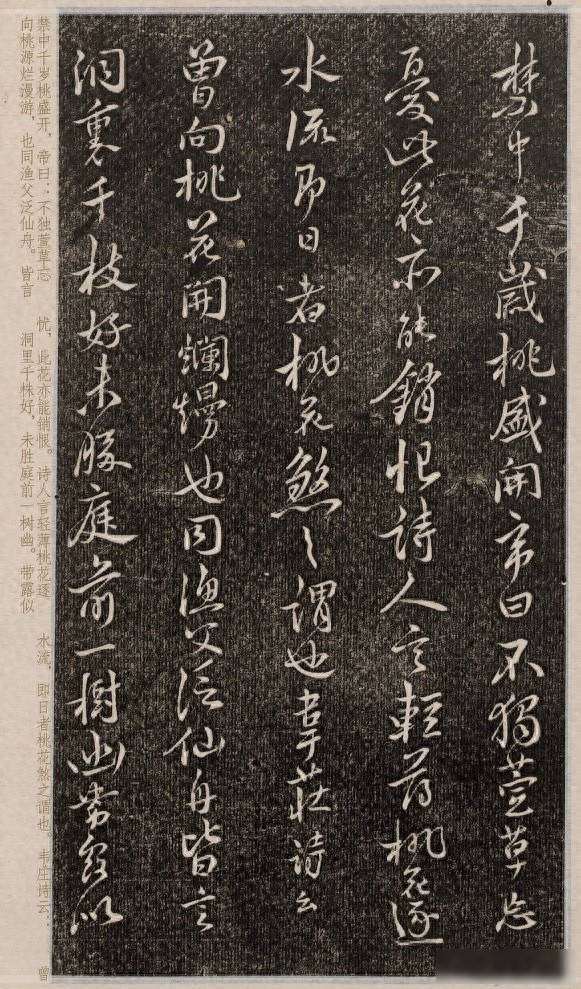 禁中千歲桃盛開帝曰不獨萱草忘
憂此花亦能銷恨詩人言輕薄桃花逐
水流即日者桃花煞之謂也韋莊詩云
曾向桃花開爛熳也同漁父泛仙舟皆言
洞裏千枝好未勝庭前一樹幽帶露似
禁中千岁桃盛开，帝曰：不独萱草忘 忧，此花亦能销恨。诗人言轻薄桃花逐 水流，即日者桃花煞之谓也。韦庄诗云： 曾
向桃源烂漫游，也同渔父泛仙舟。皆言 洞里千株好，未胜庭前一树幽。带露似